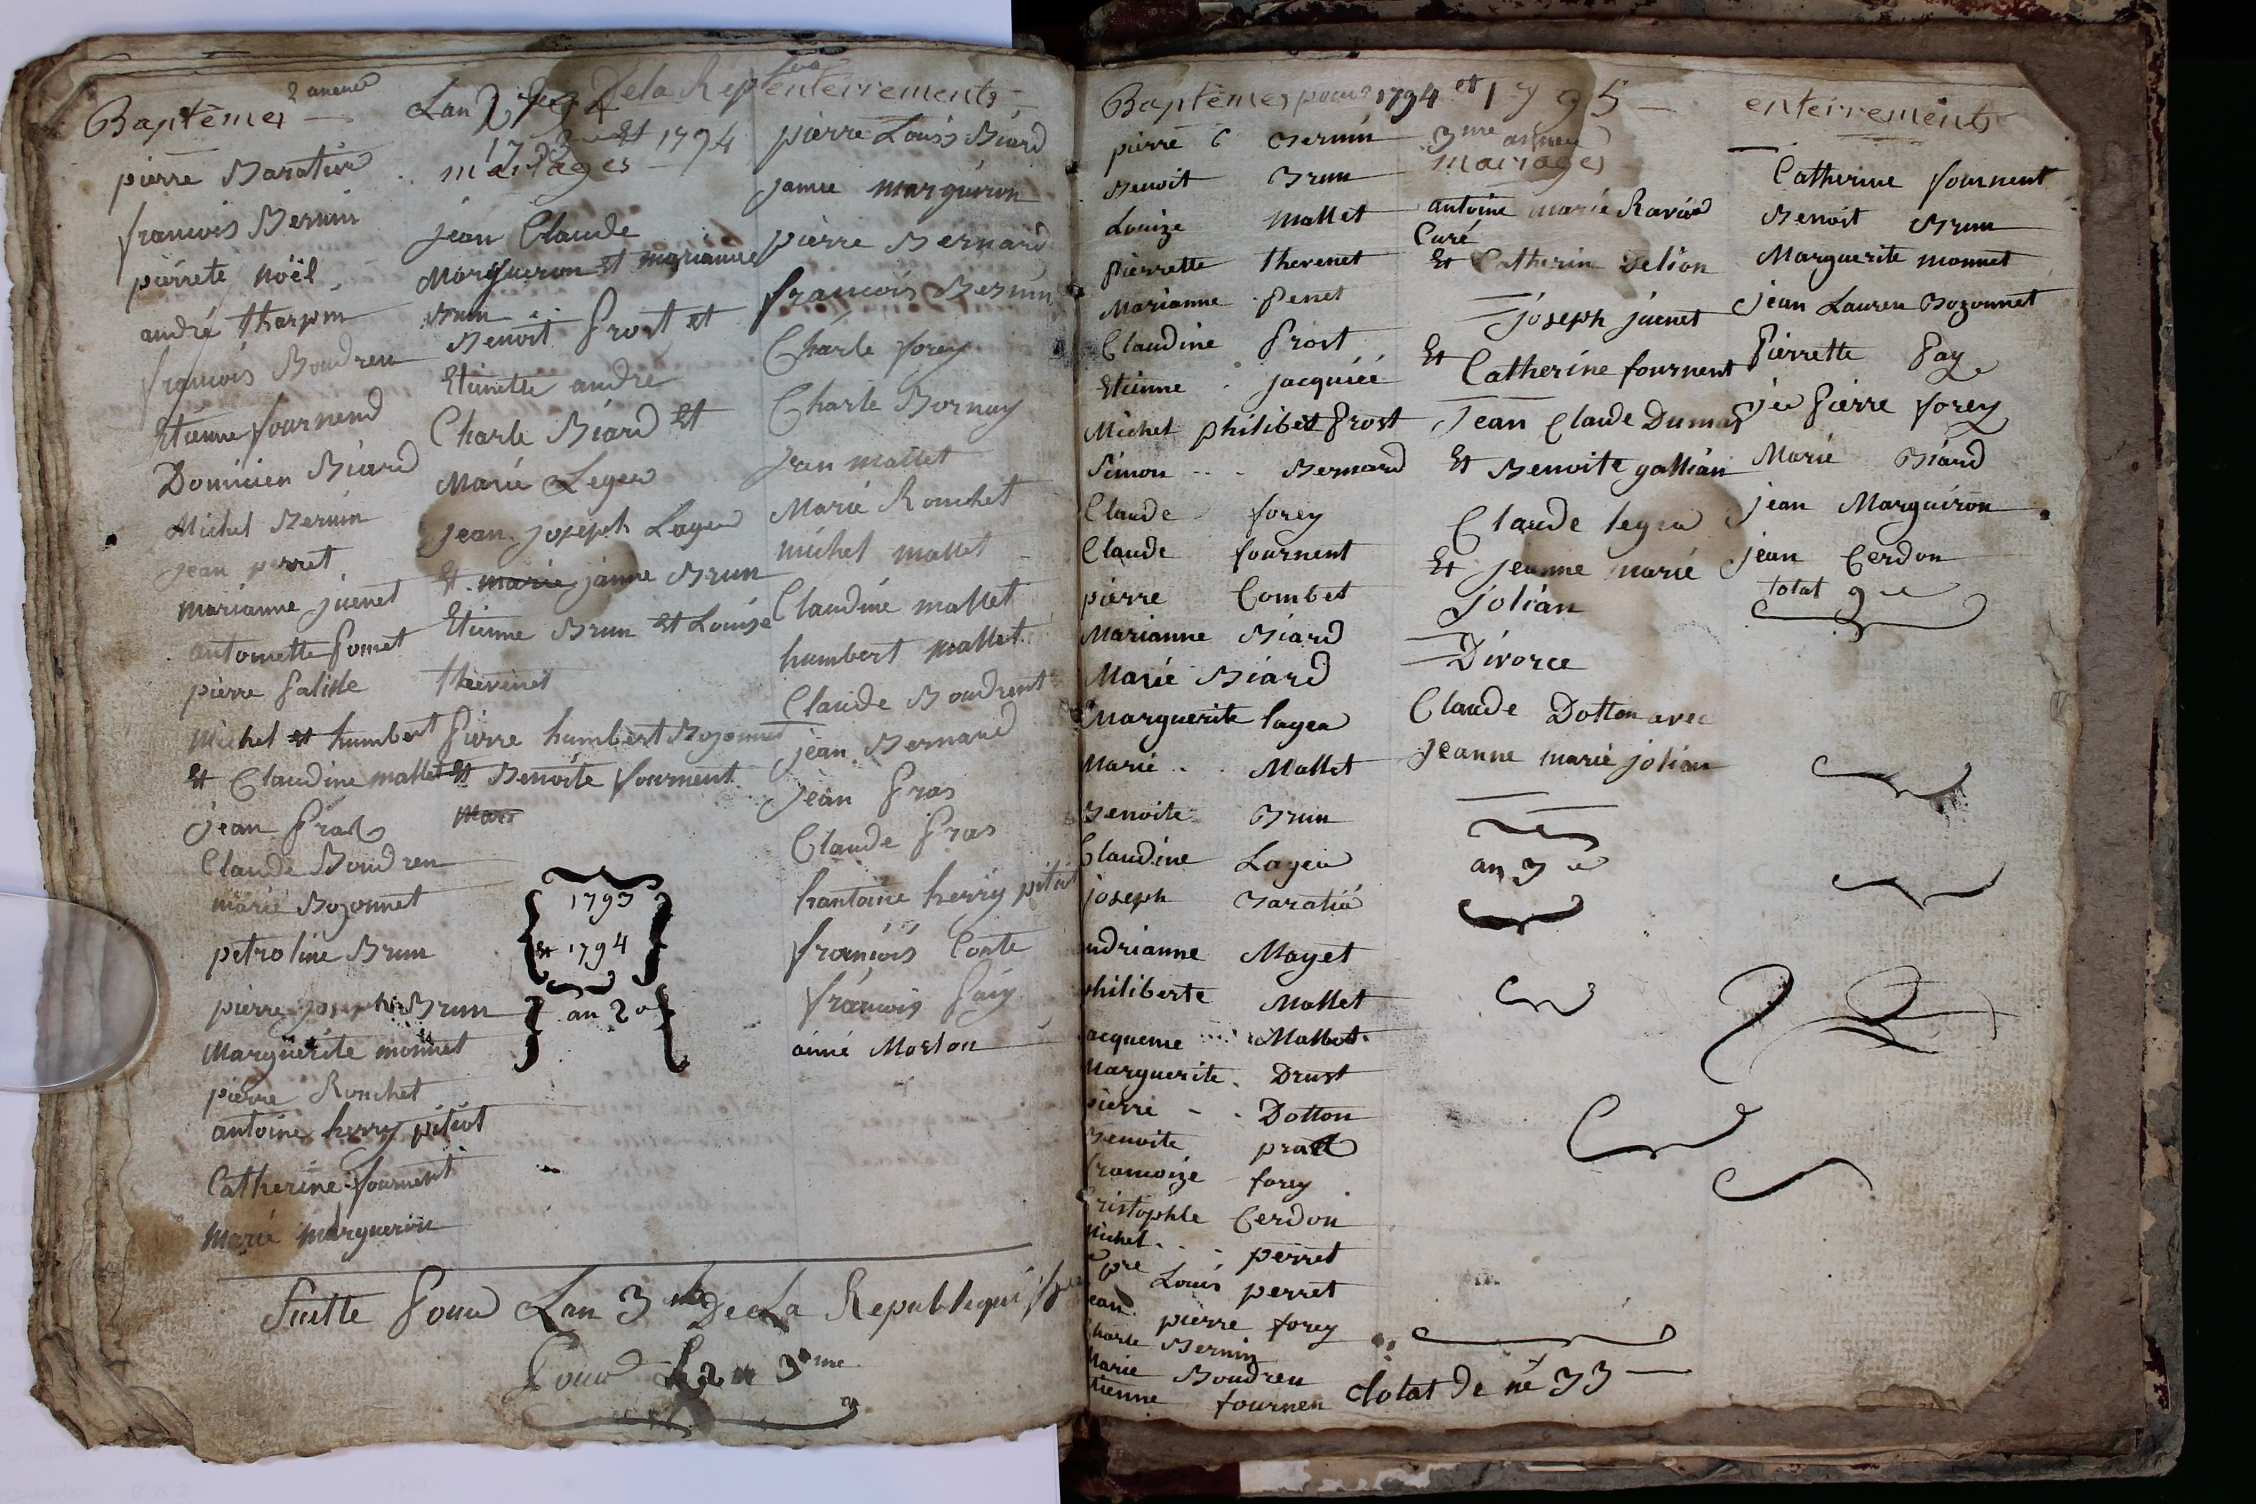 Baptêmes 2 anneé
pierre Baratier
francois Bernin
pierrete nöël
andré tharpin
francois Boudreu
Etienne fournend
Dominien Biard
Michel Bernin
jean perret
marianne juenet
antoinette
pierre
Michel et humbert
et Claudine mallet
jean
Claude Boudreu
marie Bozonnet
petroline Brun
pierre joseph Brun
Marguerite monnet
pierre Ronchet
antoine herry pitiot
Catherine fournent
Marie marguerin
Lan 2 De la Rep
1793 et 1794
mariages
jean Claude
Marguiron et marianne
Brun
Benoit Prost et
Etienette andre
Charle Biard et
Marie Leger
jean joseph Layer
et marie janne Brun
Etienne Brun et Louise
thevenet
Pierre humbert Bozonnet
et Benoite fournent
mar
1793
et 1794
an 2e
enterrements
pierre Louis Biard
jame marguiron
pierre Bernard
francois Bernin
Charle forey
Charle Bornay
jean mallet
Marie Ronchet
michel mallet
Claudine mallet
humbert mallet
Claude Boudrent
jean Bernard
jean Pras
Claude Pras
hantoine herriy pitiot
francois Conte
francois Pay
aimé Morlon
Suitte Pour Lan 3me De La Republique
Pour L 3me
Baptêmes pour 1794 et 1795
pierre C Bernin
Benoit Brun
Louize Mallet
Pierrette thevenet
Marianne Penet
Claudine Prost
Etienne jacquiéé
Michel philibet Prost
Simon Bernard
Claude forey
Claude fournent
pierre Combet
Marianne Biard
Marie Biard
Marguerite layer
Marie Mallet
Benoite Brun
Claudine Layer
joseph Baratié
andrianne Mayet
philiberte Mallet
jacqueme Mallet
Marguerite Drust
pierre Dotton
Benoite prat
francoize forey
Cristophle Cerdon
Michel perret
pre Louis perret
jean pierre forey
Charle Bernin
Marie Boudreu
Etienne fournen
totat de né 33
3me anneé
mariages
antoine marie Ravier
Curé
et Catherin Delion
joseph juenet
et Catherine fournent
Jean Claude Dumas
et Benoite gallian
Claude leger
et jeanne marie
jolian
Divorce
Claude Dotton avec
jeanne marie jolian
an 3e
enterrements
Catherine fournent
Benoit Brun
Marguerite monnet
jean Lauren Bozonnet
Pierrette Pay
Pierre forey
Marie Biard
jean Marguiron
jean Cerdon
totat 9